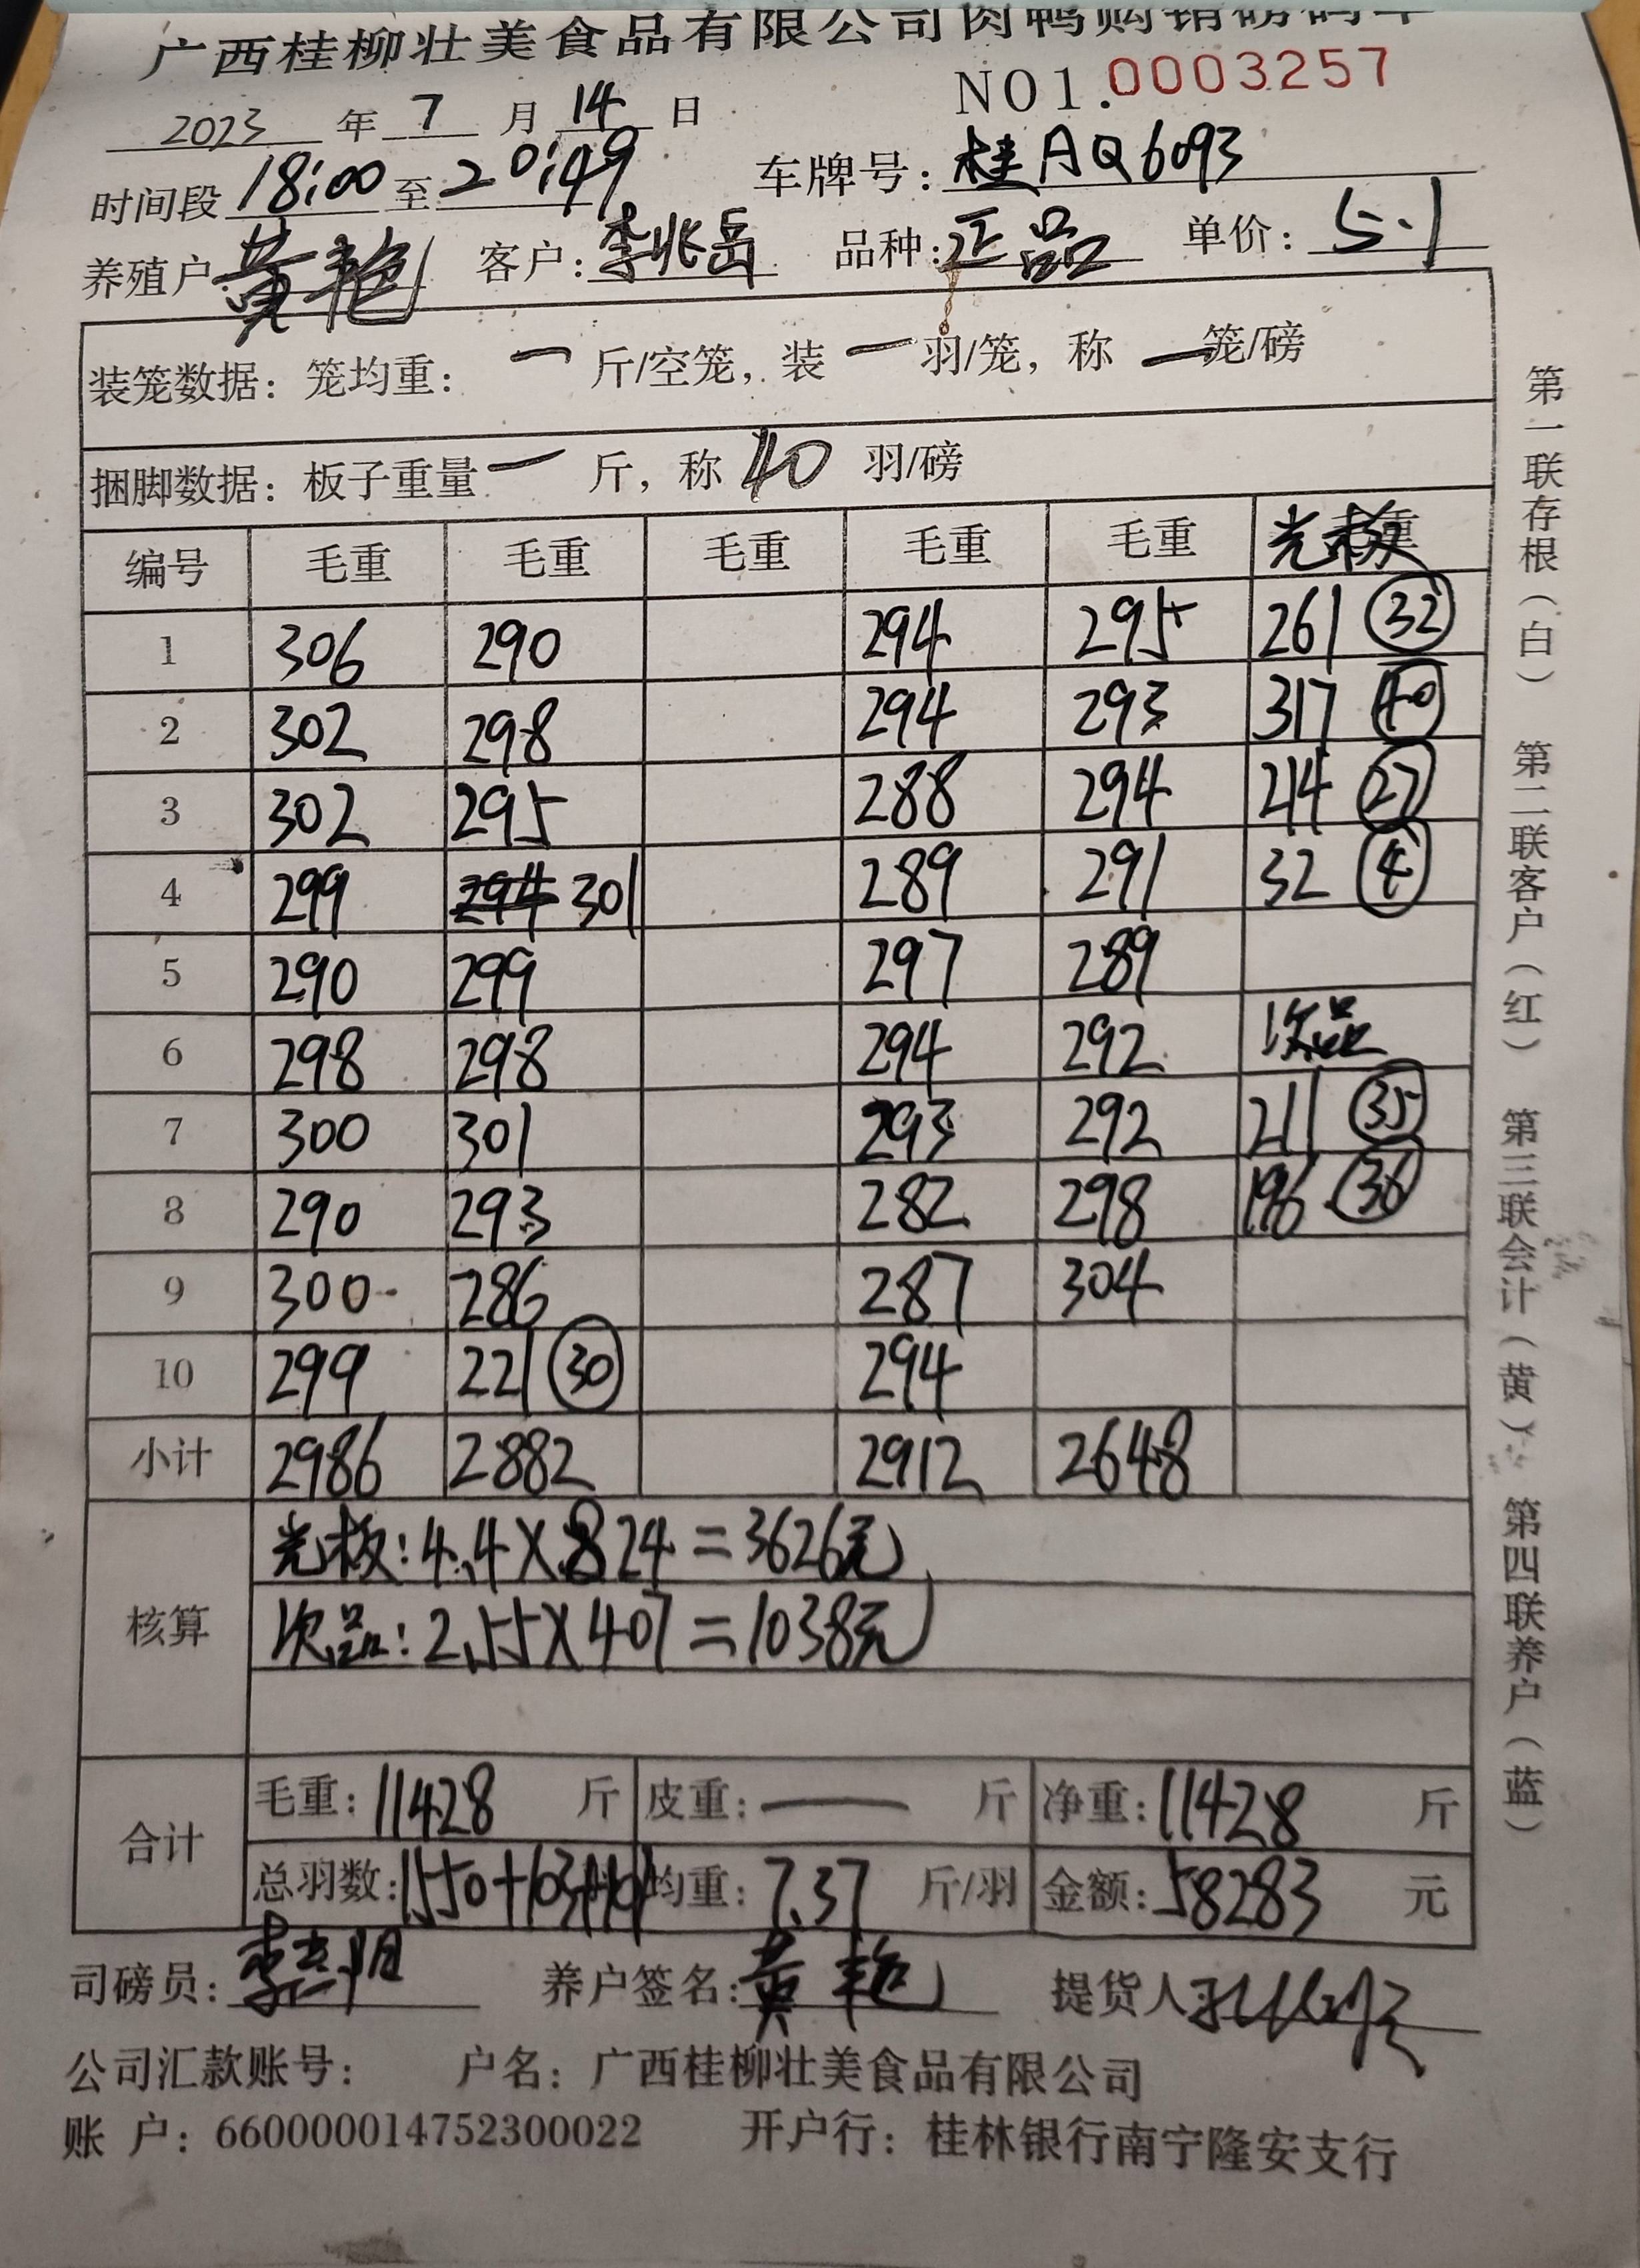 广西桂柳壮美食品有限公司肉鸭购销磅码单
NO1.0003257
2023 年 7 月 14 日
时间段 18:00 至 20:49 车牌号: 桂AQ6093
养殖户 黄艳 客户: 李兆岳 品种: 正品 单价: 5.1
装笼数据: 笼均重: 一 斤/空笼, 装 一 羽/笼, 称 一 笼/磅
捆脚数据: 板子重量 一 斤, 称 40 羽/磅
编号 毛重 毛重 毛重 毛重 毛重 光板
1 306 290 294 295 261 32
2 302 298 294 293 317 40
3 302 295 288 294 214 27
4 299 301 289 291 32 4
5 290 299 297 289
6 298 298 294 292 次品
7 300 301 293 292 211 35
8 290 293 282 298 196 36
9 300 286 287 304
10 299 221 30 294
小计 2986 2882 2912 2648
核算
光板: 4.4×824=3626元
次品: 2.55×407=1038元
合计
毛重: 11428 斤 皮重: — 斤 净重: 11428 斤
总羽数: 1550+103+ 均重: 7.37 斤/羽 金额: 58283 元
司磅员: 养户签名: 黄艳 提货人
公司汇款账号: 户名: 广西桂柳壮美食品有限公司
账 户: 660000014752300022 开户行: 桂林银行南宁隆安支行
第一联存根(白) 第二联客户(红) 第三联会计(黄) 第四联养户(蓝)